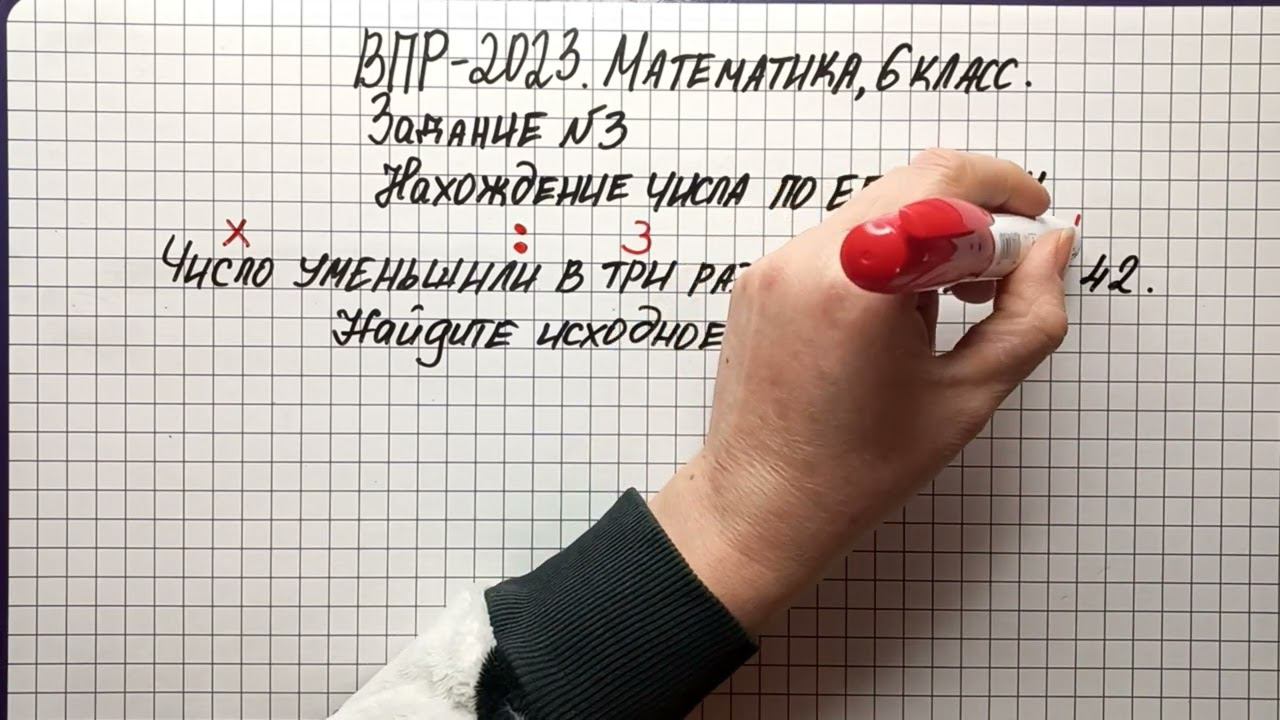 ВПР-2023. Математика, 6 класс.
Задание №3
Нахождение числа по
х : 3
Число уменьшили в три 42.
Найдите исходное